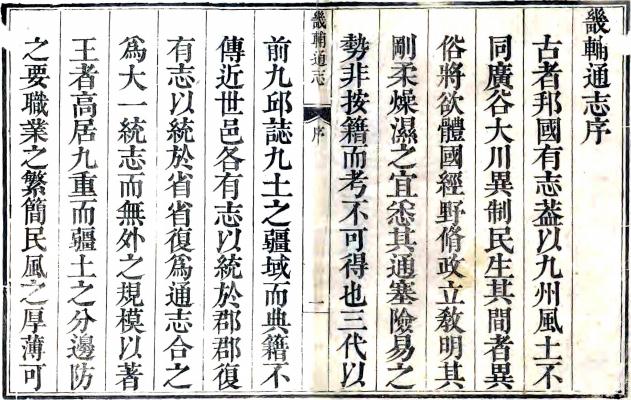 畿輔通志序
古者邦國有志葢以九州風土不
同廣谷大川異制民生其間者異
俗將欲體國經野脩政立敎明其
剛柔燥濕之宜悉其通塞險易之
勢非按籍而考不可得也三代以
畿輔通志
序
一
前九邱誌九土之疆域而典籍不
傳近世邑各有志以統於郡郡復
有志以統於省省復爲通志合之
爲大一統志而無外之規模以著
王者高居九重而疆土之分邊防
之要職業之繁簡民風之厚薄可